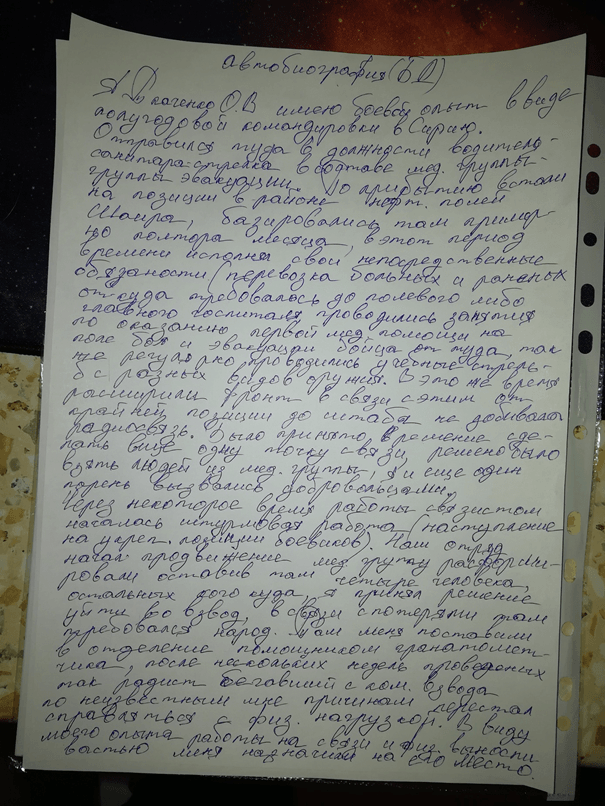 автобиография (Б Д)
Я Ткаченко О.В имею боевой опыт в виде
полугодовой командировки в Сирию.
Отправился туда в должности водитель-
санитар-стрелка в составе мед. группы-
группы эвакуации. По прибытию встали
на позиции в районе нефт. полей
Шаира, базировались там пример-
но полтора месяца, в этот период
времени исполнял свои непосредственные
обязаности (перевозка больных и раненых
откуда требовалось до полевого либо
главного госпиталя проводились занятия
по оказанию первой мед. помощи на
поле боя и эвакуации бойца от туда, так
же регулярно проводились учебные стрель-
бы с разных видов оружия. В это же время
расширили фронт в связи с этим от
крайней позиции до штаба не добивала
радиосвязь. Было принято решение сде-
лать еще одну точку связи, решено было
взять людей из мед. группы, я и еще один
парень вызвались добровольцами.
Через некоторое время работы связистом
началась штурмовая работа (наступление
на укреп. позиции боевиков). Наш отряд
начал продвижение мед группу расформи-
ровали оставив там четыре человека,
остальных кого куда, я принял решение
уйти во взвод, в связи с потерями там
требовался народ. Там меня поставили
в отделение помощником гранатомет-
чика, после нескольких недель проведеных
так радист бегавший с ком. взвода
по неизвестным мне причинам перестал
справляться с физ. нагрузкой. В виду
моего опыта работы на связи и физ. выносли
востью меня назначили на его место.